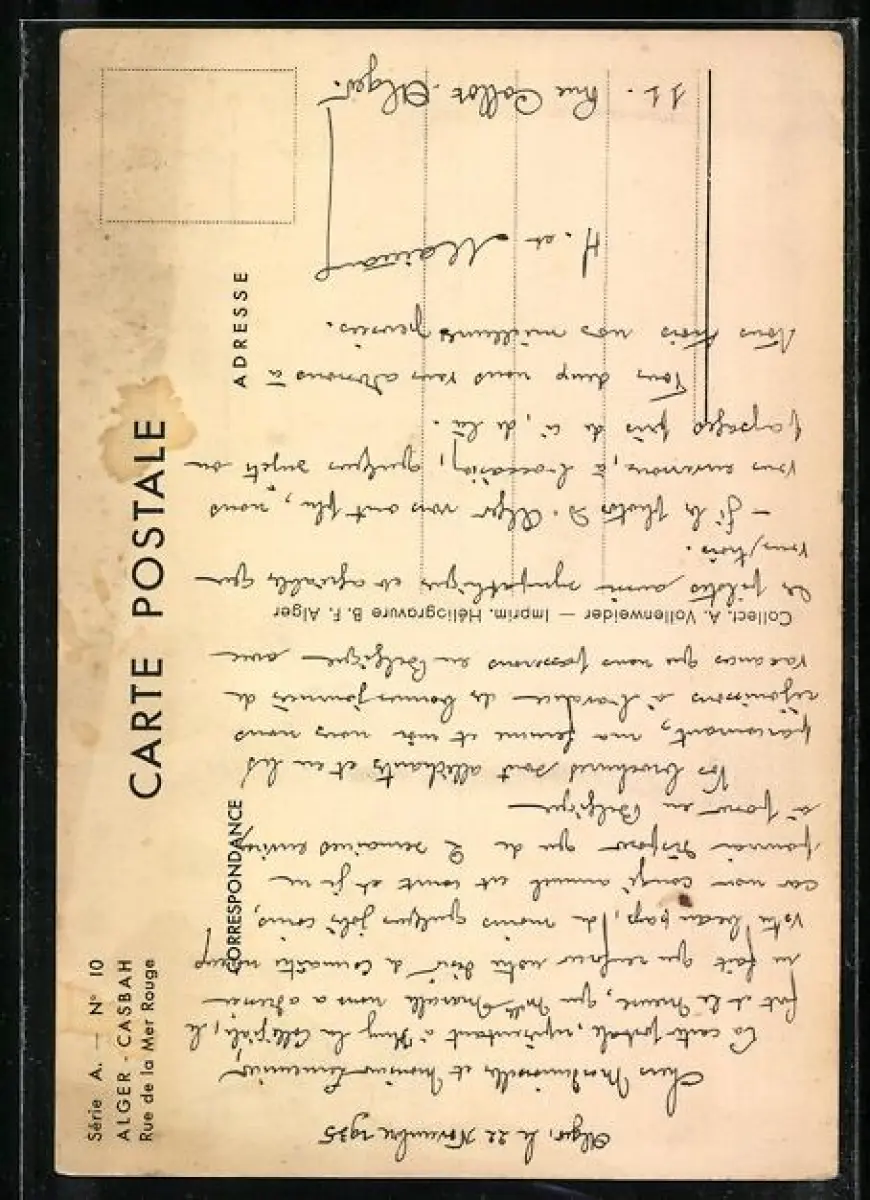 Série A. — N° 10
ALGER - CASBAH
Rue de la Mer Rouge
CARTE POSTALE
CORRESPONDANCE
ADRESSE
Collect. A. Vollenweider — Imprim. Héliogravure B. F. Alger
Alger, le 22 Novembre 1935
Chers Mademoiselle et Monsieur
La carte postale, représentant à Huy la Collégiale, le
fort et la Meuse, que Melle nous a adressée
ne fait que renforcer notre désir de connaître mieux
votre beau pays, du moins quelques jolis coins,
car mon congé annuel est court et je ne
pourrai disposer que de 2 semaines environ
à passer en Belgique —
Vos brochures sont alléchantes et en les
parcourant, ma femme et moi nous nous
réjouissons à l'avance des bonnes journées de
vacances que nous passerons en Belgique avec
des pilotes aussi sympathiques et agréables que
vous trois.
— Si les photos d'Alger vous ont plu, nous
vous enverrons, à l'occasion, quelques sujets ou
paysages pris de ci, de là.
Tous deux nous vous adressons à
vous trois nos meilleures pensées.
H. et
11. Rue Callot. Alger.